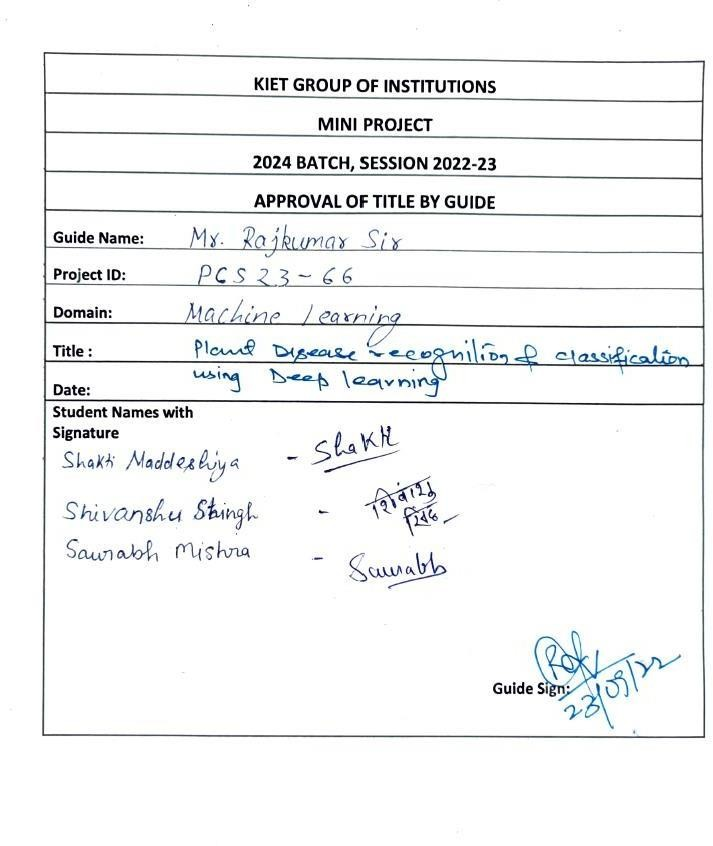 KIET GROUP OF INSTITUTIONS
MINI PROJECT
2024 BATCH, SESSION 2022-23
APPROVAL OF TITLE BY GUIDE
Guide Name: Mr. Rajkumar Sir
Project ID: PCS23-66
Domain: Machine Learning
Title : Plant Disease recognition & classification
using Deep learning
Date:
Student Names with
Signature
Shakti Maddeshiya - Shakti
Shivanshu Singh - शिवांशु
सिंह
Saurabh Mishra - Saurabh
Guide Sign:
23/09/22